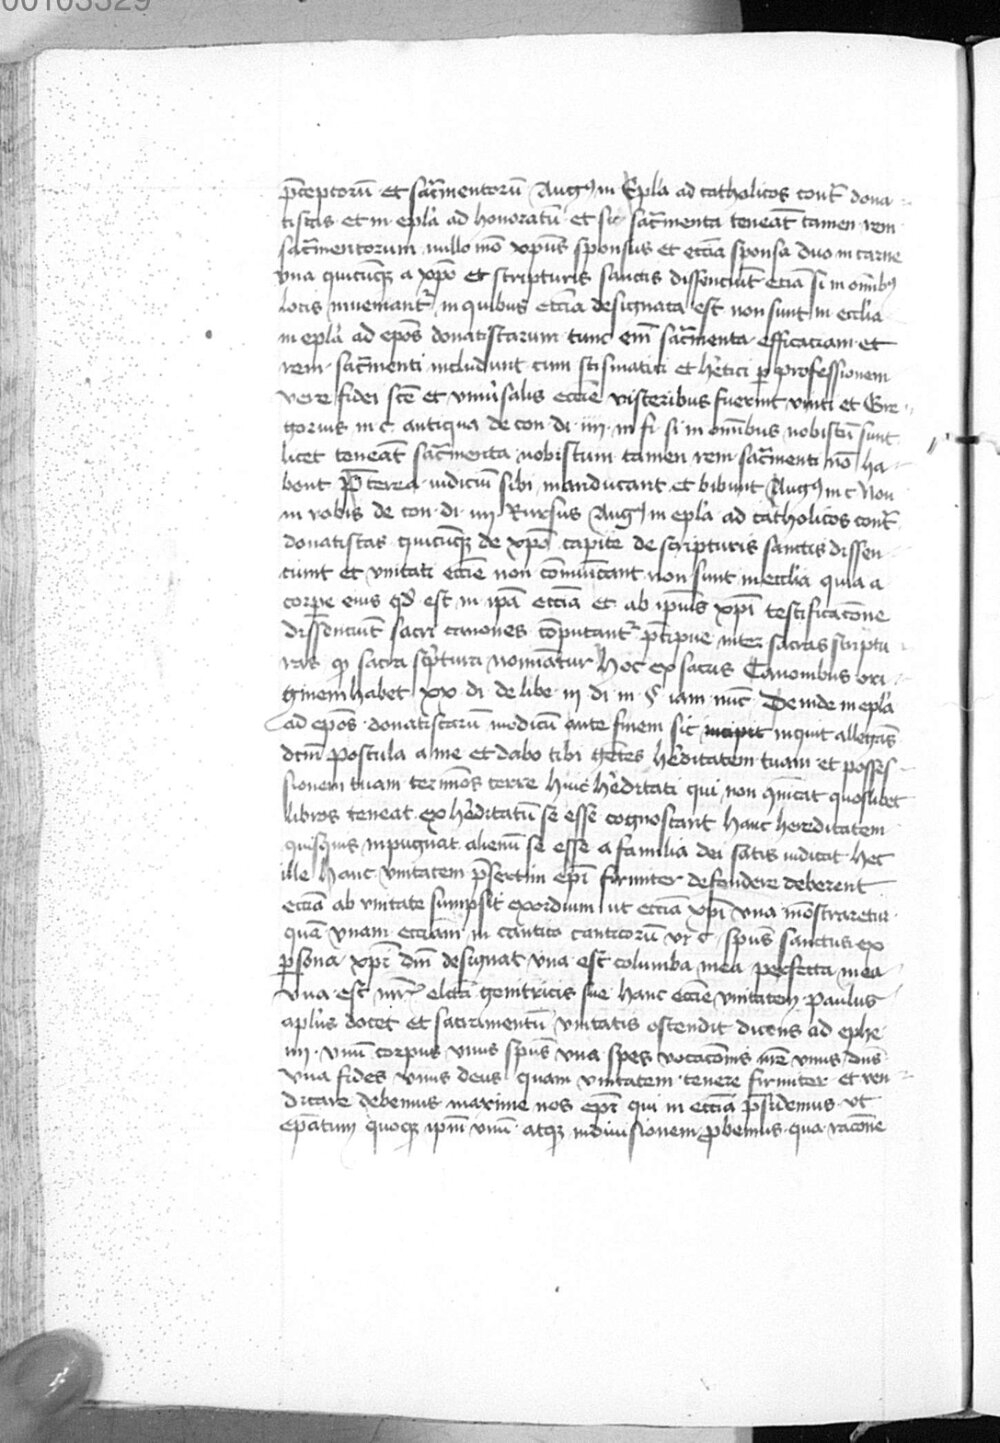 00103329
p̄ceptorū et sac̄mentorū Augꝰ in Epl̄a ad catholicos cont̄ dona
tistas et in epl̄a ad honoratū et sic sac̄menta teneāt tamen rem
sac̄mentorum nullo mō xp̄us sponsus et eccīa sponsa duo in carne
vna quicūqꝫ a xp̄o et scripturis sanctis dissenciūt eciā si in om̄ibꝰ
locis inueniant̄ in quibus eccīa designata est non sunt in eccl̄ia
in epl̄a ad ep̄os donatistarum tunc em̄ sac̄menta efficaciam et
rem sac̄menti includunt cum scismatici et h̄etici ꝑ professionem
vere fidei sc̄e et vniūsalis eccīe visceribus fuerint vniti et Gre
gorius in c. antiqua de con. di. iiii. in fi. si in om̄ibus nobiscū sunt
licet teneāt sac̄menta nobiscum tamen rem sac̄menti nō ha
bent P̄terea iudiciū sibi manducant et bibunt Augꝰ in c Non
in vobis de con. di. iiii Rursus Augꝰ in epl̄a ad catholicos cont̄
donatistas quicūqꝫ de xp̄o capite de scripturis sanctis dissen
ciunt et vnitati eccīe non cōmūicant non sunt in eccl̄ia quia a
corpe eius qd̄ est in ip̄a eccīa et ab ip̄ius xp̄i testificacōne
dissenciūt sacri canones cōputant̄ p̄cipue inter sacras scriptu
ras qꝫ sacra sc̄ptura nomīatur Hoc ex sacris Canonibus ori
ginem habet xx di. de libe. iii di. in § iam nūc Deinde in epl̄a
ad ep̄os donatistarū modicū ante finem sic incipit inquit allegās
dcm̄ Postula a me et dabo tibi gētes h̄editatem tuam et posses
sionem tuam ter̄mos terre Huic h̄editati qui non ꝯmūicat quoslibet
libros teneat exh̄editatū se esse cognoscant Hanc hereditatem
quisquis inpugnat alienū se esse a familia dei satis iudicat Hec
ille Hanc vnitatem p̄sertim ep̄i firmiter defendere deberent
eccīa ab vnitate sumpsit exordium ut eccīa xp̄i vna mōstraretur
quā vnam eccl̄iam in cantico canticorū vi c. sp̄us sanctus ex
ꝑsona xp̄i dn̄i designat vna est columba mea perfecta mea
vna est mr̄i electa genitricis sue Hanc eccīe vnitatem Paulus
apl̄us docet et sacramentū vnitatis ostendit dicens ad ephe
iiii. vnū corpus vnus sp̄us vna spes vocacōnis vr̄e vnus dn̄s
vna fides vnus deus quam vnitatem tenere firmiter et ven
dicare debemus maxime nos ep̄i qui in eccīa p̄sidemus vt
ep̄atum quoqꝫ ip̄m vnū atqꝫ indiuisionem ꝓbemus qua racōne